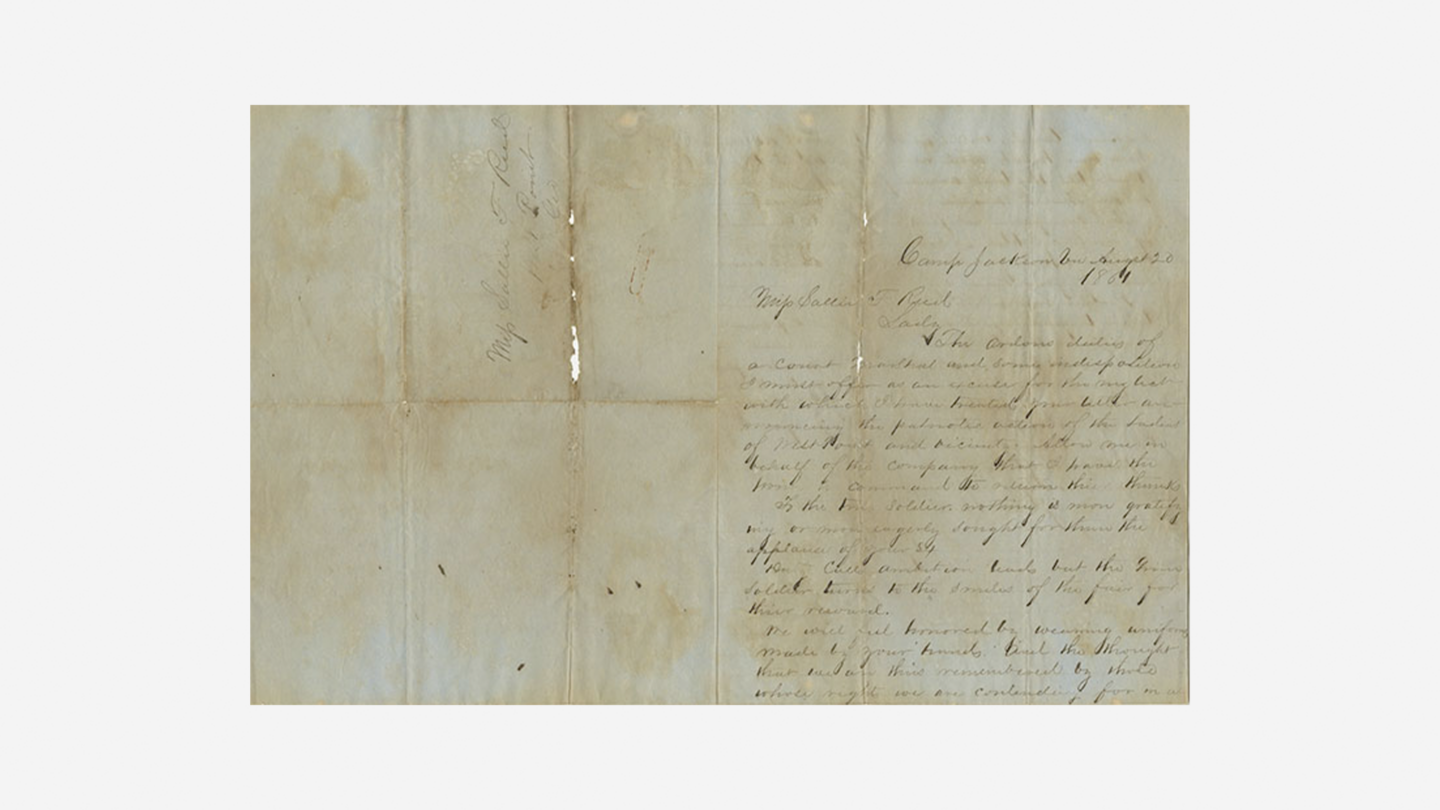 Miss Sallie T Reid
West Point
Ga
Camp Jackson Va August 20
1861
Miss Sallie T Reid
Lady
The arduous duties of
a Court Martial and some indisposition
I must offer as an excuse for the neglect
with which I have treated your letter an-
nouncing the patriotic action of the Ladies
of West Point and vicinity. Allow me in
behalf of the company that I have the
honor to command to return their thanks
To the true soldier nothing is more gratify
ing or more eagerly sought for than the
applause of your
ambition leads but the
soldier turns to the smiles of the fair for
their reward.
We will feel honored by wearing uniforms
made by your hands. And the thought
that we are thus remembered by those
whose right we are contending for